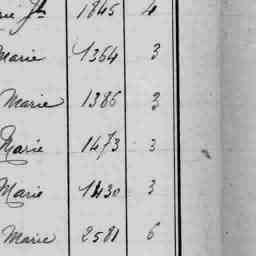 1845 4
Marie 1364 3
Marie 1386 3
Marie 1473 3
Marie 1430 3
Marie 2581 6